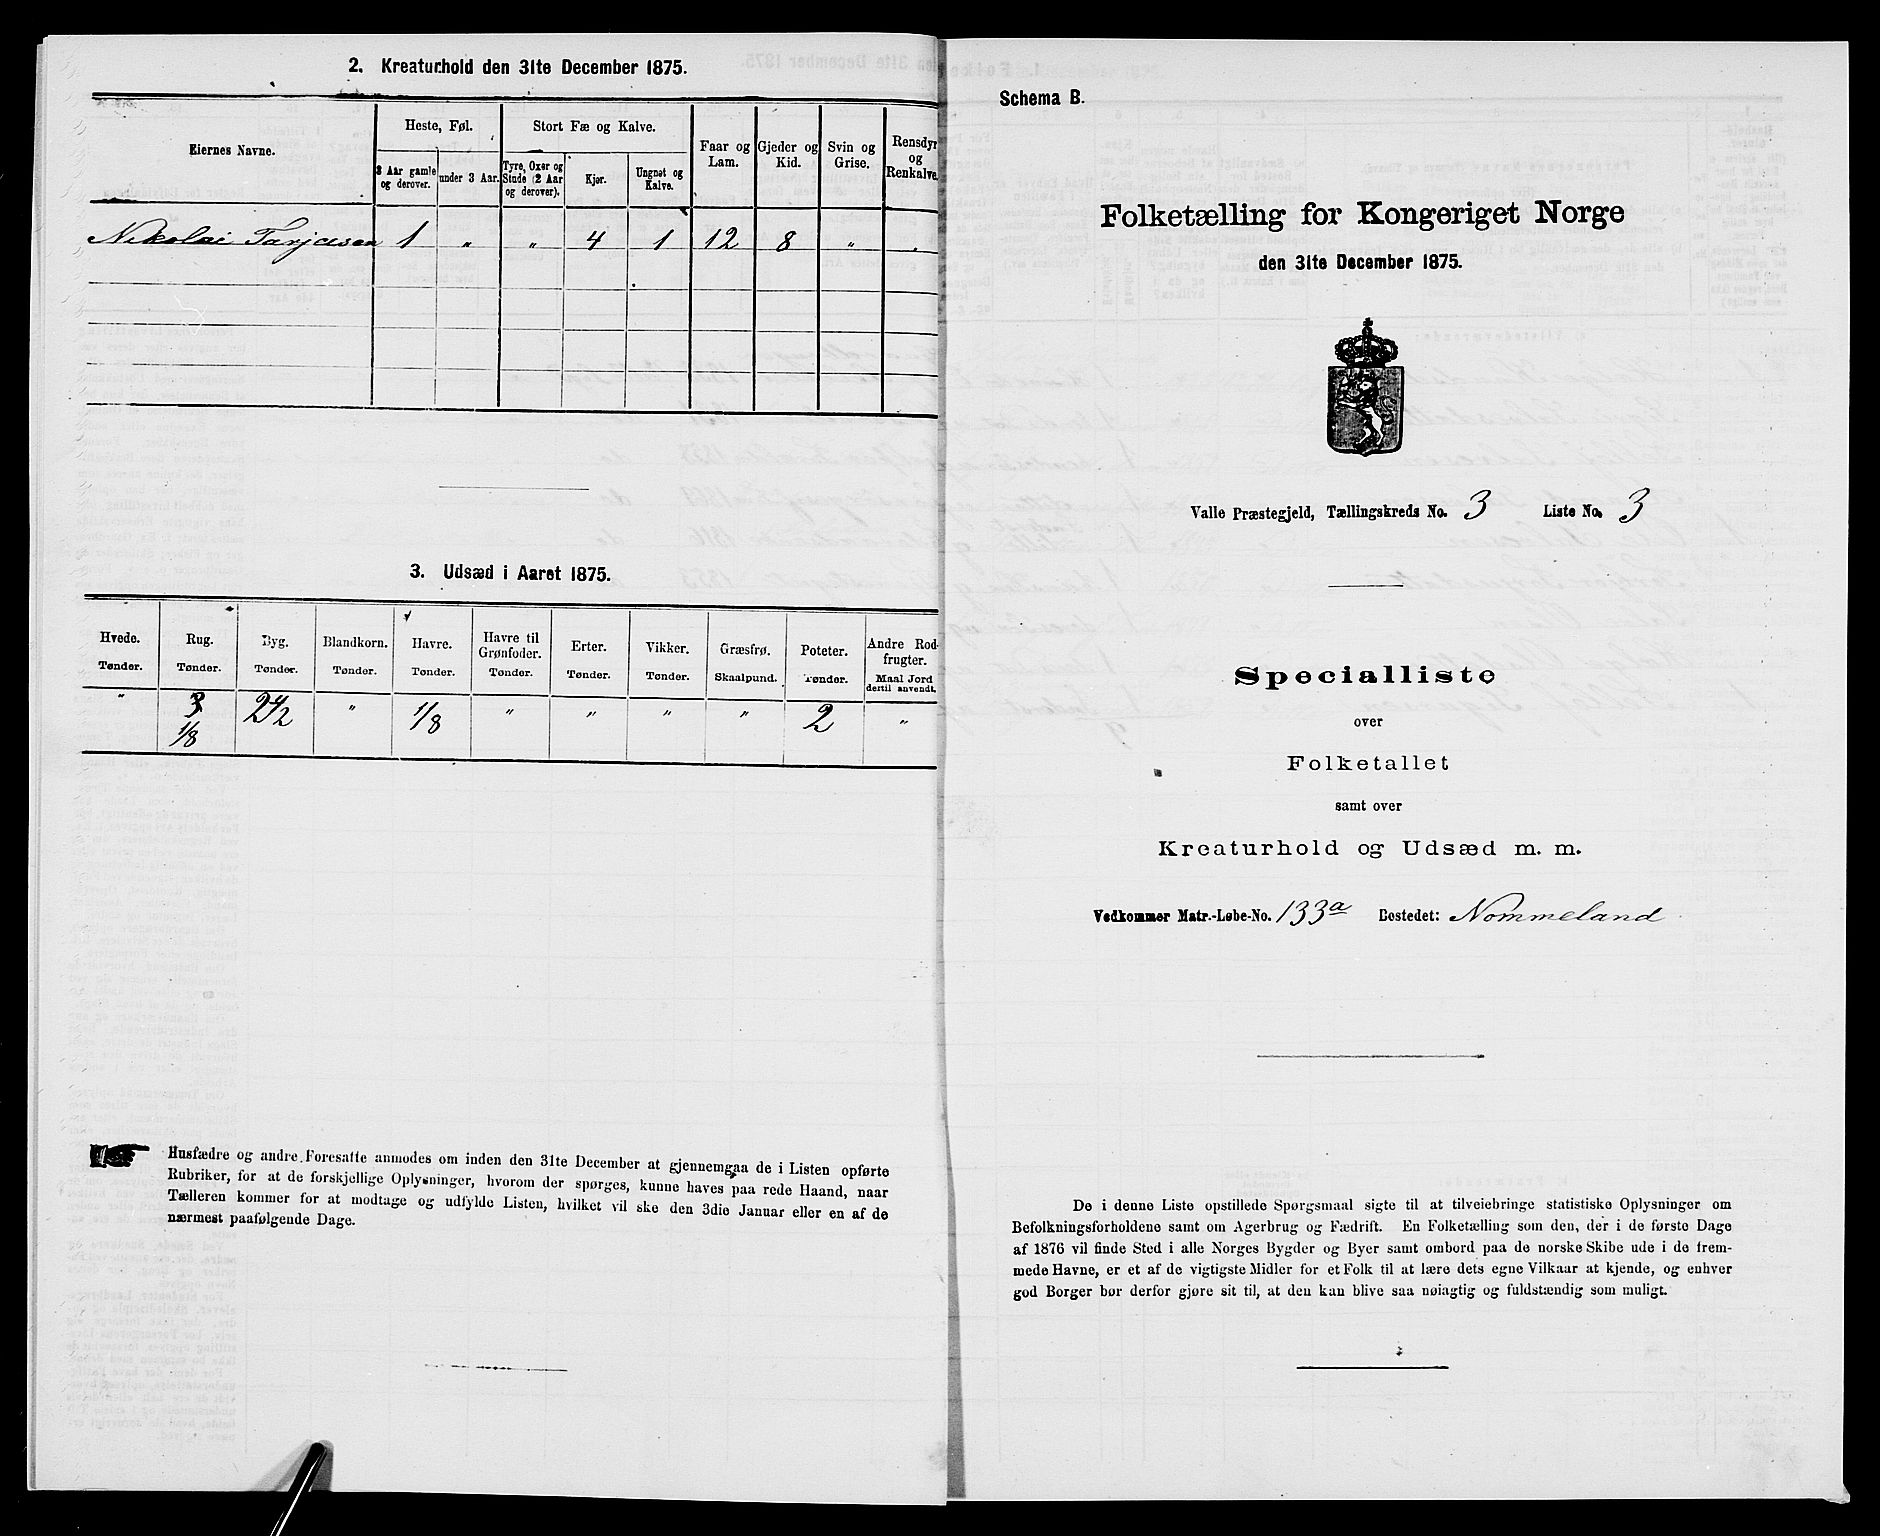 2. Kreaturhold den 31te December 1875.
Eiernes Navne.
Heste, Føl.
3 Aar gamle og derover.
under 3 Aar.
Stort Fæ og Kalve.
Tyre, Oxer og Stude (2 Aar og derover).
Kjør.
Ungnøt og Kalve.
Faar og Lam.
Gjeder og Kid.
Svin og Grise.
Rensdyr og Renkalve.
Nikolai Tarjeisen 1 " " 4 1 12 8 " "
3. Udsæd i Aaret 1875.
Hvede. Rug. Byg. Blandkorn. Havre. Havre til Grønfoder. Erter. Vikker. Græsfrø. Poteter. Andre Rodfrugter.
Tønder. Tønder. Tønder. Tønder. Tønder. Tønder. Tønder. Tønder. Skaalpund. Tønder. Maal Jord dertil anvendt.
" 3/8 2 1/2 " 1/8 " " " " 2 "
1/8
Husfædre og andre Foresatte anmodes om inden den 31te December at gjennemgaa de i Listen opførte
Rubriker, for at de forskjellige Oplysninger, hvorom der spørges, kunne haves paa rede Haand, naar
Tælleren kommer for at modtage og udfylde Listen, hvilket vil ske den 3die Januar eller en af de
nærmest paafølgende Dage.
Schema B.
Folketælling for Kongeriget Norge
den 31te December 1875.
Valle Præstegjeld, Tællingskreds No. 3 Liste No. 3
Specialliste
over
Folketallet
samt over
Kreaturhold og Udsæd m. m.
Vedkommer Matr.-Løbe-No. 133a Bostedet: Nommeland
De i denne Liste opstillede Spørgsmaal sigte til at tilveiebringe statistiske Oplysninger om
Befolkningsforholdene samt om Agerbrug og Fædrift. En Folketælling som den, der i de første Dage
af 1876 vil finde Sted i alle Norges Bygder og Byer samt ombord paa de norske Skibe ude i de frem-
mede Havne, er et af de vigtigste Midler for et Folk til at lære dets egne Vilkaar at kjende, og enhver
god Borger bør derfor gjøre sit til, at den kan blive saa nøiagtig og fuldstændig som muligt.